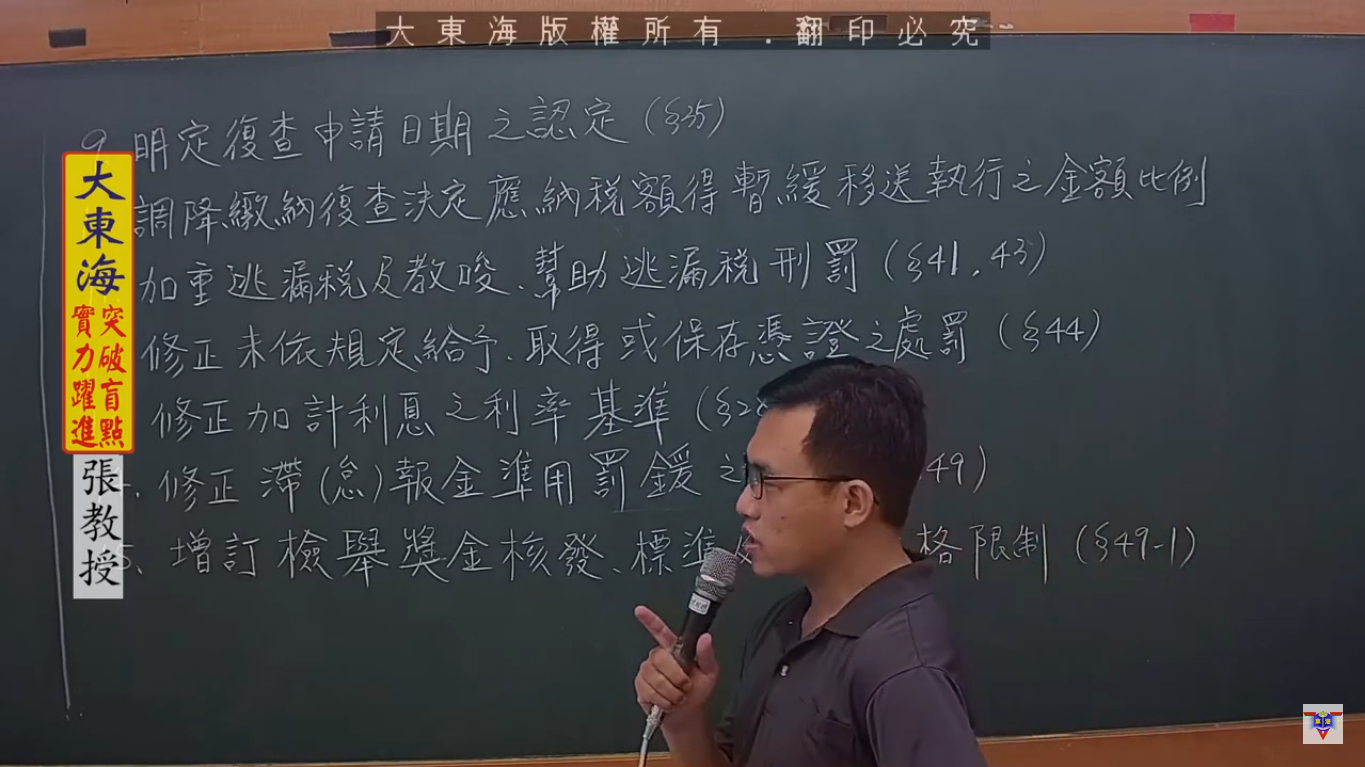 大東海版權所有．翻印必究
9. 明定復查申請日期之認定（§35）
調降繳納復查決定應納稅額得暫緩移送執行之金額比例
加重逃漏稅及教唆、幫助逃漏稅刑罰（§41、43）
修正未依規定給予、取得或保存憑證之處罰（§44）
修正加計利息之利率基準（§28
. 修正滯(怠)報金準用罰鍰之 49）
5. 增訂檢舉獎金核發、標準 格限制（§49-1）
大東海
突破盲點
實力躍進
張教授